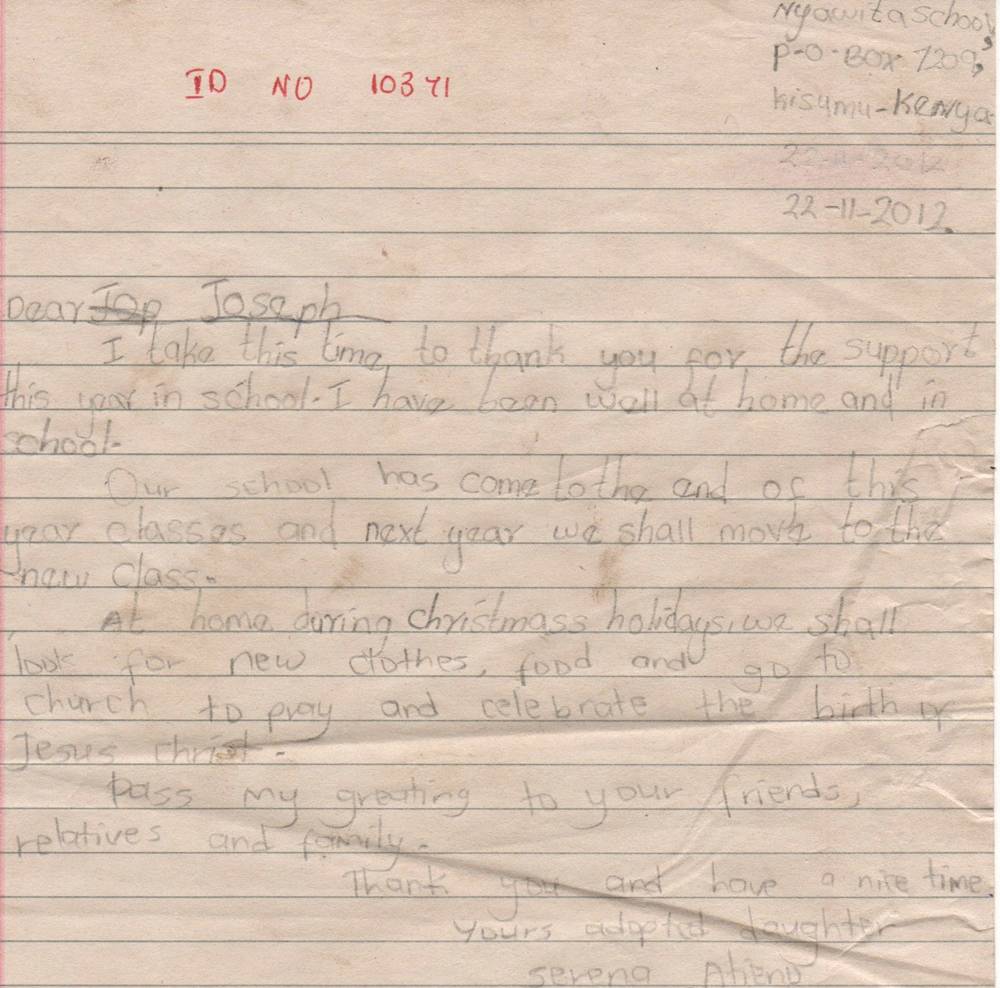 Nyawita school,
P-O-BOX 7209,
ID NO 10371
Kisumu-Kenya.
22-11-2012
22-11-2012.
Dear Jop Joseph
I take this time, to thank you for the support
this year in school. I have been well at home and in
school.
Our school has come to the end of this
year classes and next year we shall move to the
new class.
At home during christmass holidays, we shall
look for new clothes, food and go to
church to pray and celebrate the birth of
Jesus christ.
Pass my greating to your friends,
relatives and family.
Thank you and have a nice time.
Yours adopted daughter
serena Atieno